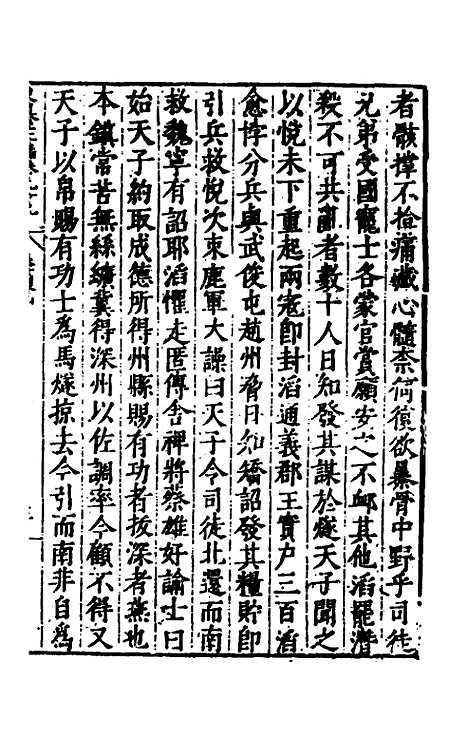 者骸撑不掩痛衊心髓柰何復欲暴骨中野乎司徒
兄弟受國寵士各蒙官賞願安之不邺其他滔罷潛
殺不可共亂者數十人日知發其謀於燧天子聞之
以悦未下重起兩寇即封滔通義郡王實户三百滔
愈悖分兵與武俊屯趙州脅日知矯詔發其糧貯即
引兵救悦次束鹿軍大譟曰天子令司徒北還而南
救魏寧有詔耶滔懼走匿傳舍裨將蔡雄好諭士曰
始天子約取成德所得州縣賜有功者拔深者燕也
本鎮常苦無絲纊冀得深州以佐調率今顧不得又
天子以帛賜有功士為馬燧掠去今引而南非自為